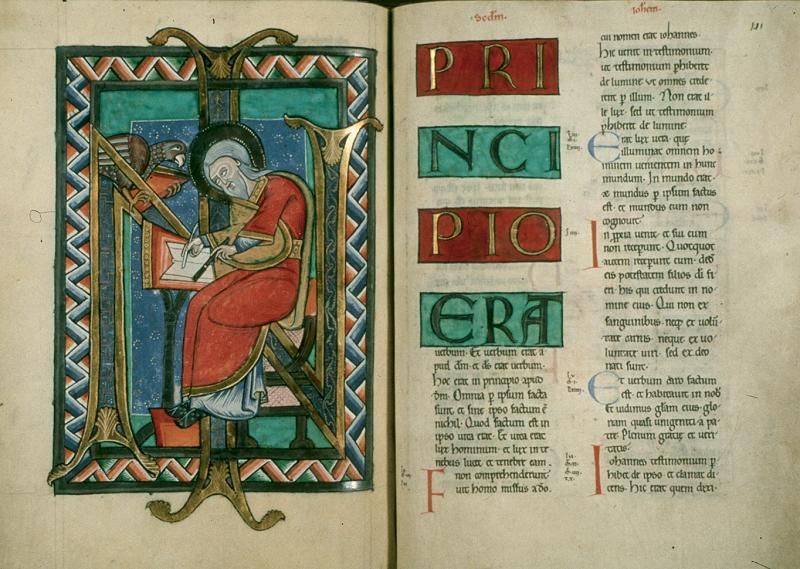 IN
Scdm
Iohem
181
PRI
NCI
PIO
ERAT
uerbum. Et uerbum erat a
pud dm. et ds erat uerbum.
Hoc erat in principio apud
dm. Omnia p ipsum facta
sunt. et sine ipso factum e
nichil. Quod factum est in
ipso uita erat. Et uita erat
lux hominum. et lux in te
nebris lucet. et tenebre eam
non comprehenderunt.
Fuit homo missus a do.
cui nomen erat iohannes.
Hic uenit in testimonium.
ut testimonium phiberet
de lumine. ut omnes crede
rent p illum. Non erat il
le lux. sed ut testimonium
phiberet de lumine.
Erat lux uera. que
illuminat omnem ho
minem uenientem in hunc
mundum. In mundo erat.
& mundus p ipsum factus
est. et mundus eum non
cognouit.
In ppria uenit. et sui eum
non receperunt. Quotquot
autem receperunt eum. dedit
eis potestatem filios di fi
eri. his qui credunt in no
mine eius. Qui non ex
sanguinibus. neq ex uolun
tate carnis. neque ex uo
luntate uiri. sed ex deo
nati sunt.
Et uerbum caro factum
est. et habitauit in nob.
Et uidimus gliam eius. glo
riam quasi unigeniti a pa
tre. Plenum gratie et ueri
tatis.
Iohannes testimonium p
hibet de ipso. et clamat di
cens. Hic erat quem dixi.